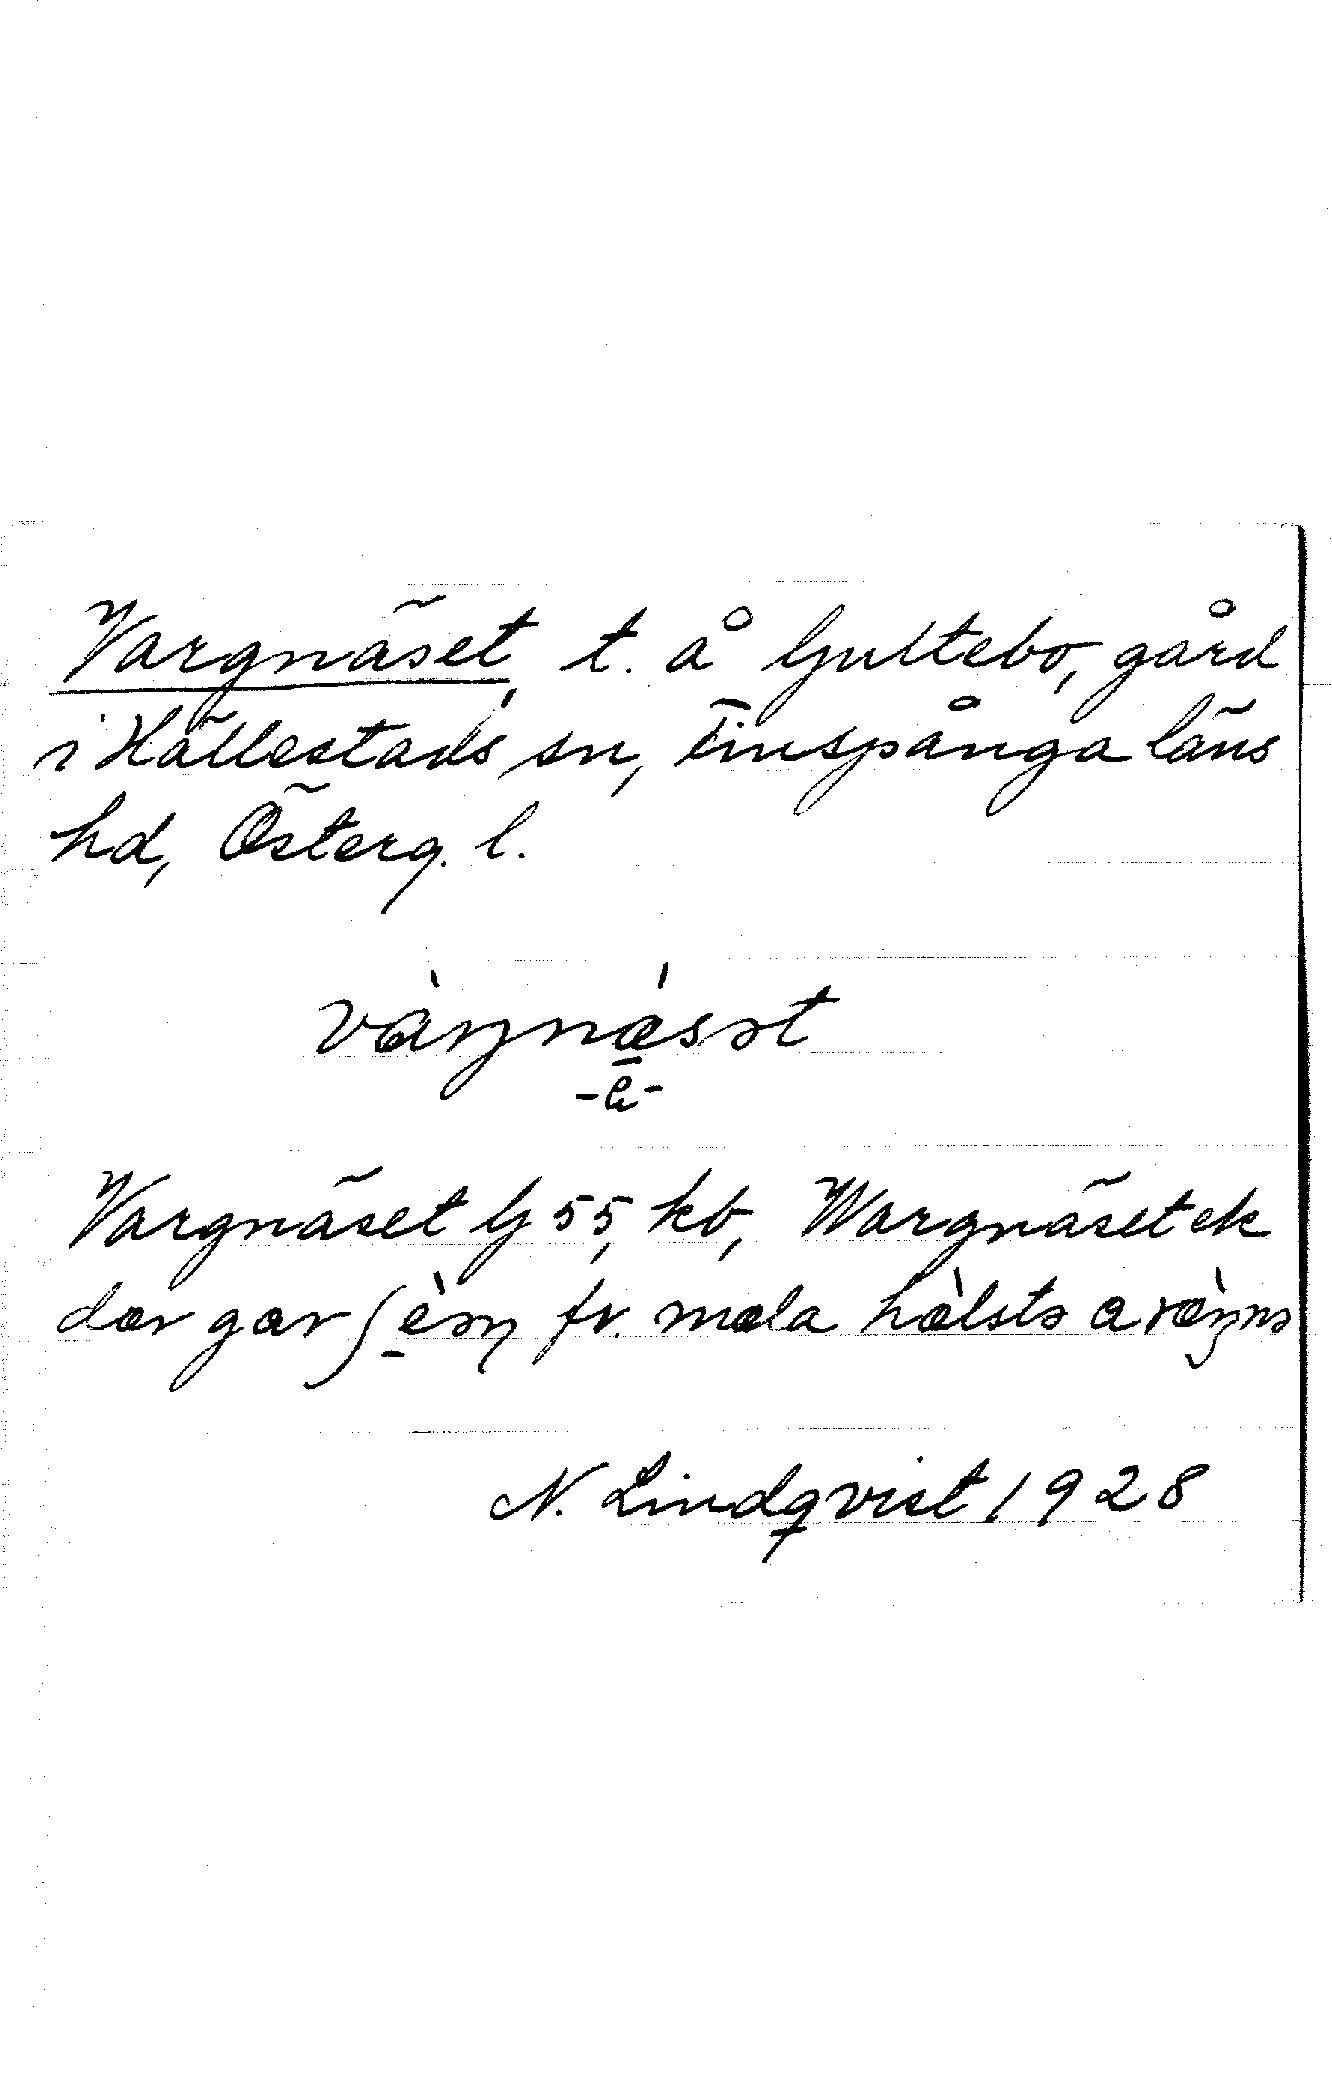 Vargnäset, t. å Ljultebo, gård
i Hällestads sn, Finspånga läns
hd, Österg. l.
vàrŋnæ̀sət
-e-
Vargnäset Lj 55, kb, Wargnäset ek
dær gær ʃèən fr. mæla hæ̀lstə a ræ̀ŋnə
N. Lindqvist 1928